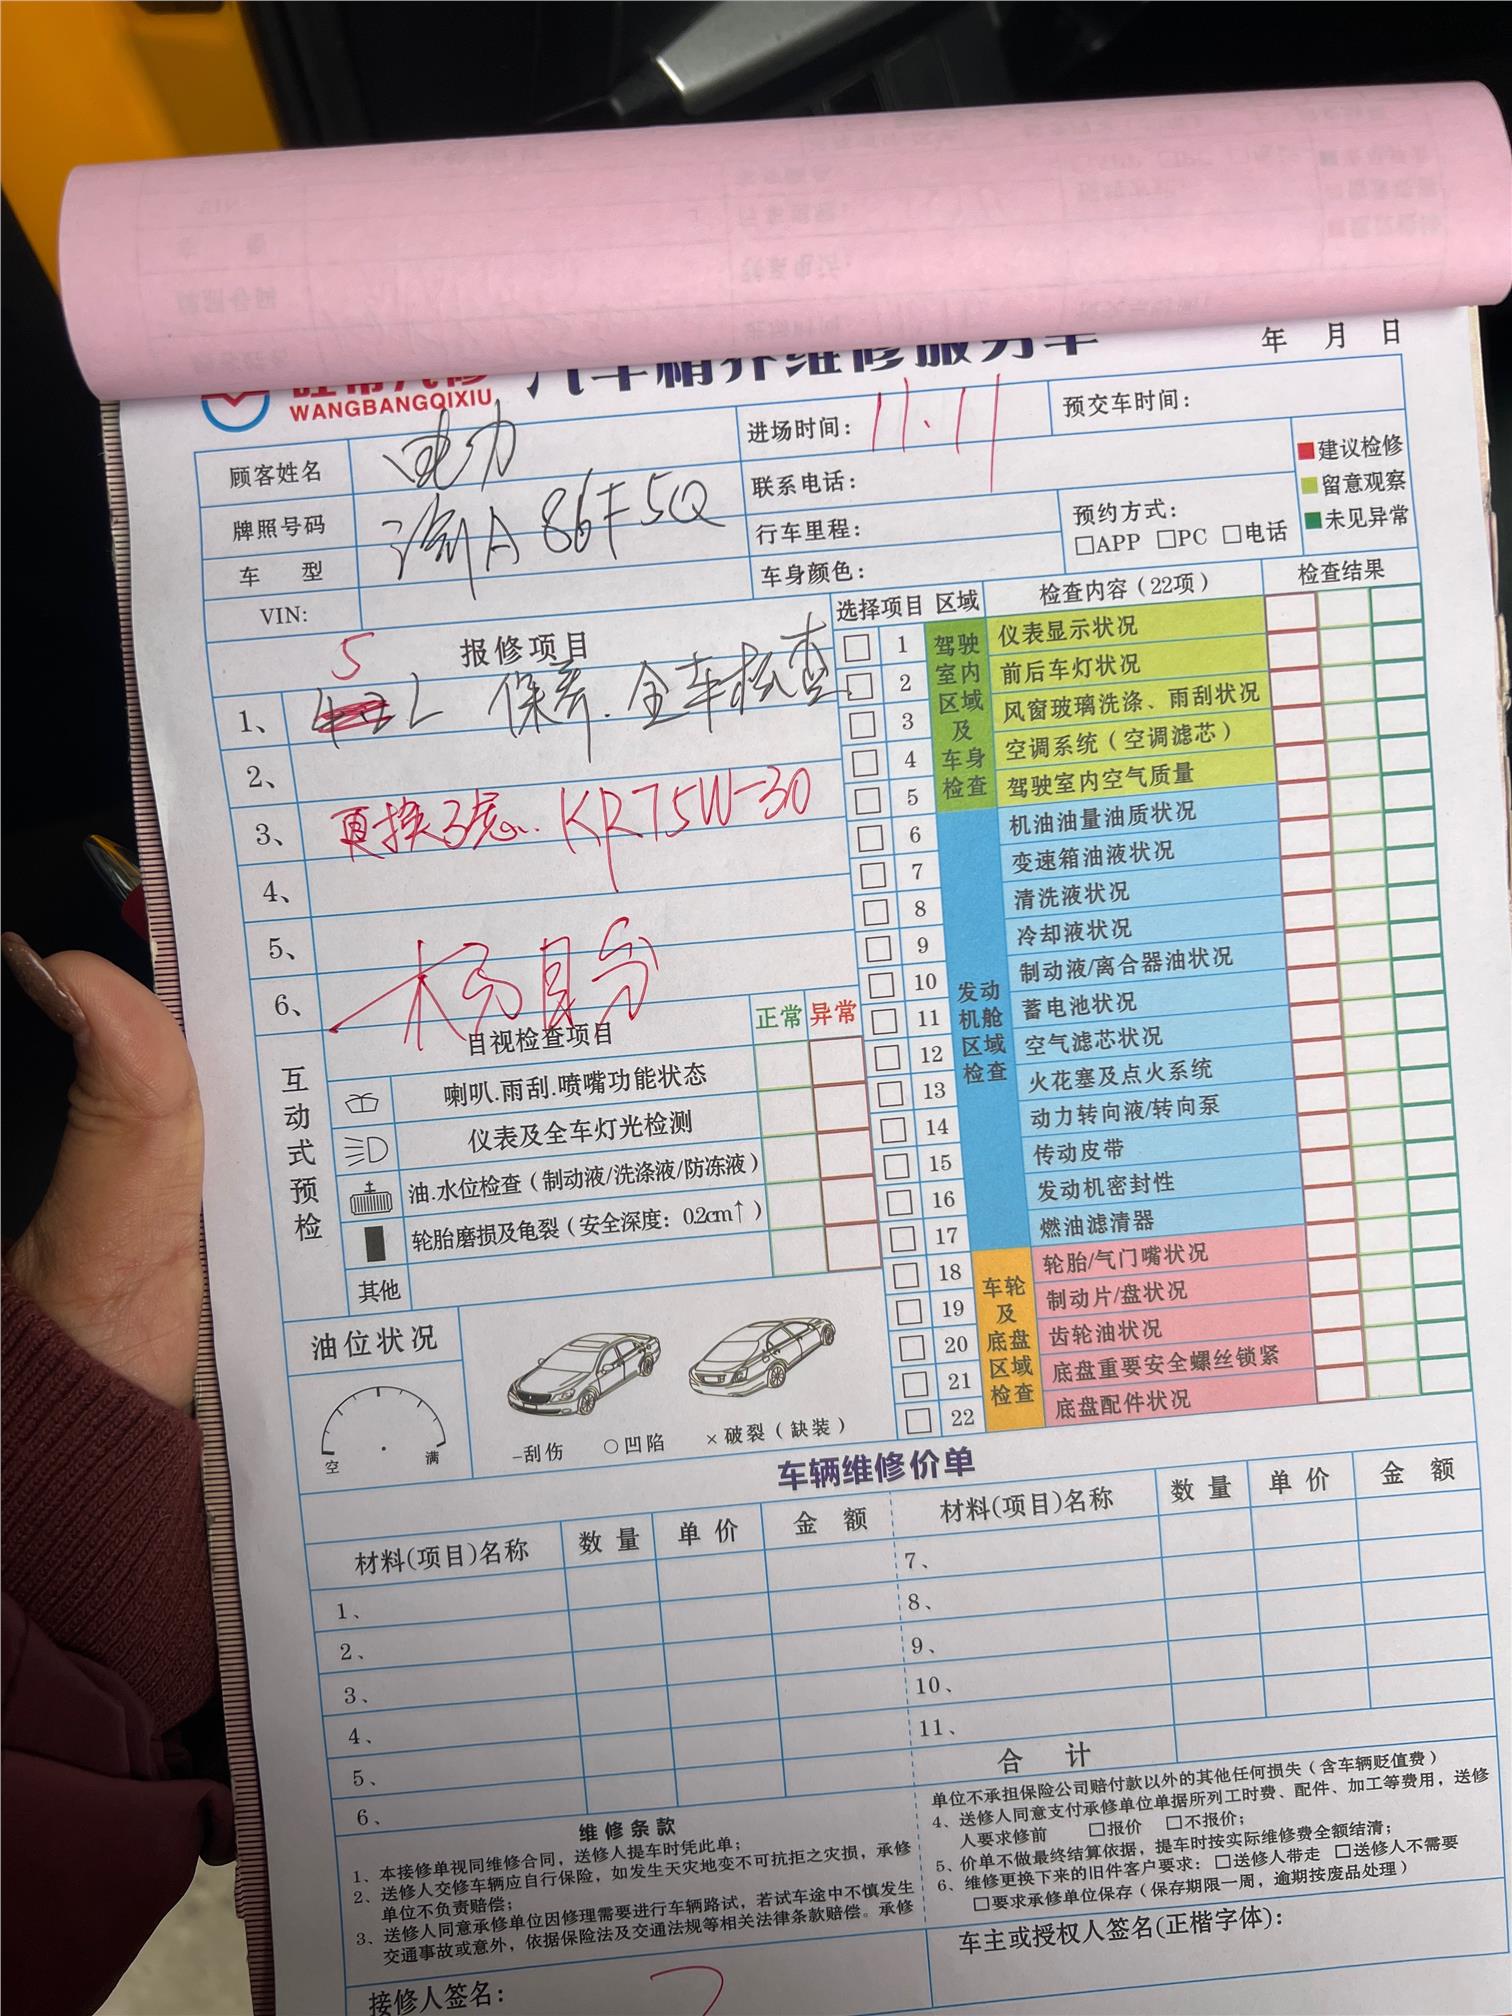 WANGBANGQIXIU
汽车精养维修服务单
年 月 日
顾客姓名 电力
进场时间: 11.11
预交车时间:
牌照号码 渝A 86F5Q
联系电话:
车 型
行车里程:
预约方式:
□APP □PC □电话
VIN:
车身颜色:
建议检修
留意观察
未见异常
报修项目
1、 5 L 保养.全车检查
2、
3、 KR75W-30
4、
5、
6、
选择项目 区域 检查内容(22项) 检查结果
驾驶室内区域及车身检查
1 仪表显示状况
2 前后车灯状况
3 风窗玻璃洗涤、雨刮状况
4 空调系统(空调滤芯)
5 驾驶室内空气质量
发动机舱区域检查
6 机油油量油质状况
7 变速箱油液状况
8 清洗液状况
9 冷却液状况
10 制动液/离合器油状况
11 蓄电池状况
12 空气滤芯状况
13 火花塞及点火系统
14 动力转向液/转向泵
15 传动皮带
16 发动机密封性
17 燃油滤清器
车轮及底盘区域检查
18 轮胎/气门嘴状况
19 制动片/盘状况
20 齿轮油状况
21 底盘重要安全螺丝锁紧
22 底盘配件状况
互动式预检
目视检查项目 正常 异常
喇叭.雨刮.喷嘴功能状态
仪表及全车灯光检测
油.水位检查(制动液/洗涤液/防冻液)
轮胎磨损及龟裂(安全深度: 0.2cm↑)
其他
油位状况
空 满
-刮伤 ○凹陷 ×破裂(缺装)
车辆维修价单
材料(项目)名称 数量 单价 金额 材料(项目)名称 数量 单价 金额
1、 7、
2、 8、
3、 9、
4、 10、
5、 11、
6、 合 计
维修条款
1、本接修单视同维修合同,送修人提车时凭此单;
2、送修人交修车辆应自行保险,如发生天灾地变不可抗拒之灾损,承修
单位不负责赔偿;
3、送修人同意承修单位因修理需要进行车辆路试,若试车途中不慎发生
交通事故或意外,依据保险法及交通法规等相关法律条款赔偿。承修
单位不承担保险公司赔付款以外的其他任何损失(含车辆贬值费)
4、送修人同意支付承修单位单据所列工时费、配件、加工等费用,送修
人要求修前 □报价 □不报价;
5、价单不做最终结算依据,提车时按实际维修费全额结清;
6、维修更换下来的旧件客户要求: □送修人带走 □送修人不需要
□要求承修单位保存(保存期限一周,逾期按废品处理)
接修人签名:
车主或授权人签名(正楷字体):